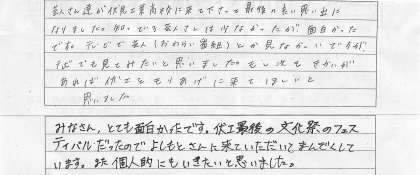 芸人さん達が伏見工業高校に来て下さって最後の良い思い出に
なりました。知ってる芸人さんは少なかったが面白かった
です。テレビで芸人(お笑い番組)とか見なかったですが
テレビでも見てみたいと思いました。もし次もきかいが
あれば伏工ともりあげに来てほしいと
思いました
みなさん、とても面白かったです。伏工最後の文化祭のフェス
ティバルだったのでよしもとさんに来ていただいてまんぞくして
います。また個人的にもいきたいと思いました。